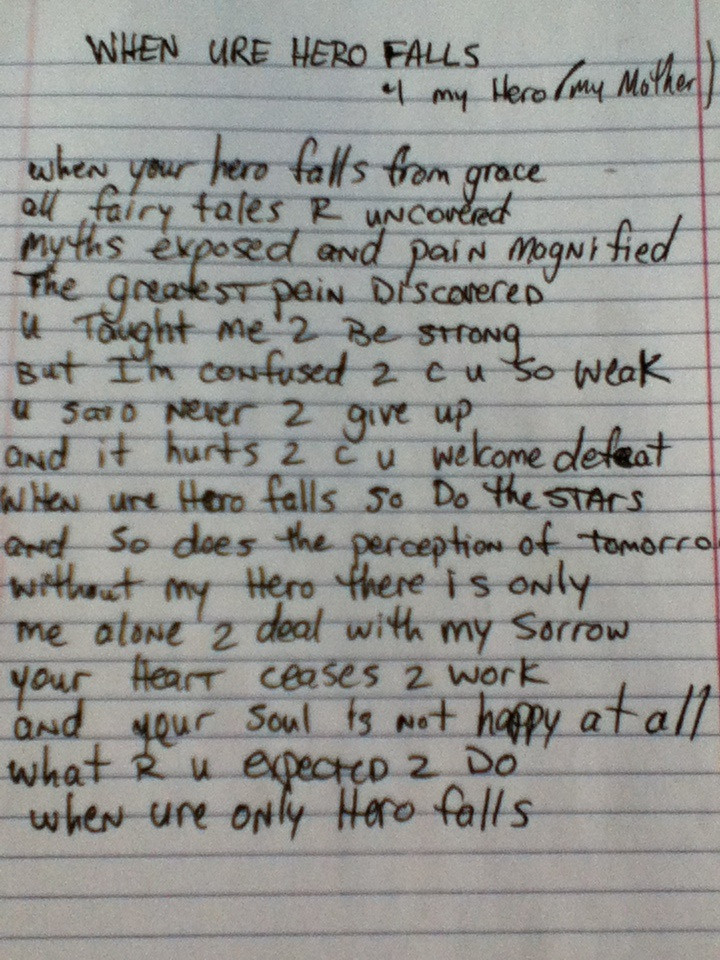 WHEN URE HERO FALLS
4 my Hero (my Mother)
when your hero falls from grace
all fairy tales R uncovered
myths exposed and pain magnified
The greatest pain Discovered
u Taught me 2 Be strong
But I'm confused 2 c u so weak
u said Never 2 give up
and it hurts 2 c u welcome defeat
when ure Hero falls so Do the STARS
and so does the perception of tomorro
without my Hero there is only
me alone 2 deal with my Sorrow
your Heart ceases 2 work
and your soul is not happy at all
what R u expected 2 Do
when ure only Hero falls